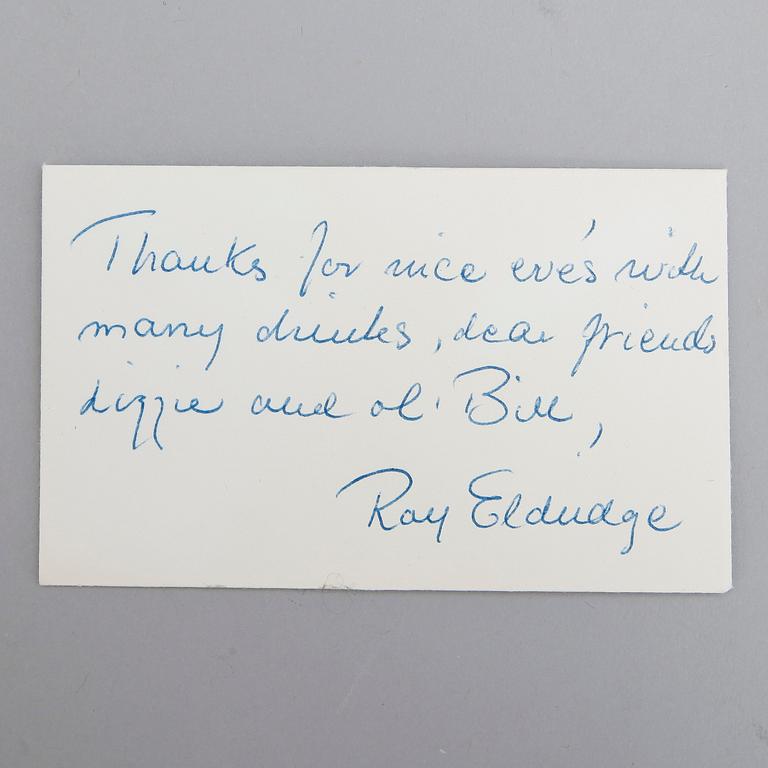 Thanks for nice eve's with
many drinks, dear friends
Lizzie and ol' Bill,
Roy Eldridge